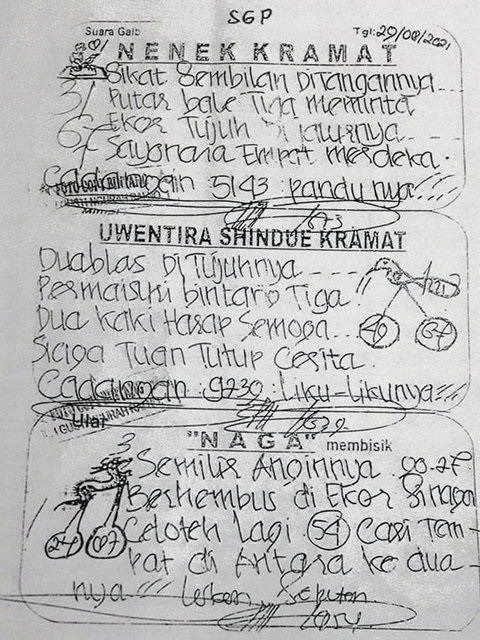 SGP
Suara Gaib
Tgl: 29/08/2021
NENEK KRAMAT
Sikat Sembilan Ditangannya...
3/ Putar bale Tiga meminta
67 Ekor Tujuh Di jalurnya...
Sayonara Empat merdeka.
Cadangan 5143 pandunya
UWENTIRA SHINDUE KRAMAT
Duablas Di Tujuhnya ----
Permaisuri bintang Tiga
Dua Kaki Harap Semoga...
49 37
Siaga Tuan Tutup Cerita.
Cadangan: 9739: Liku-Likunya
Ular
"NAGA" membisik
3
Semilir Anginnya 90-27
Berhembus di Ekor Sinaga
24 07
Celoteh Lagi 54 Cari Tem-
pat di Antara ke dua-
nya